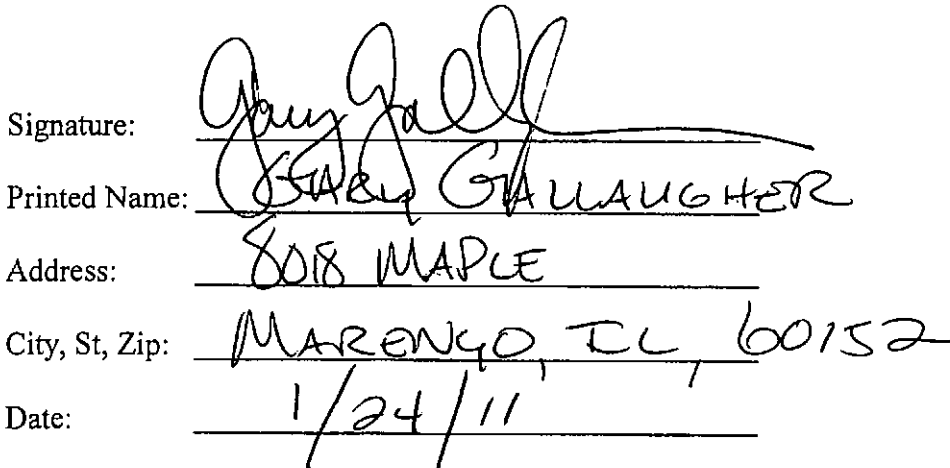 Signature: Gary Gall
Printed Name: GARY GALLAUGHER
Address: 8018 MAPLE
City, St, Zip: MARENGO, IL, 60152
Date: 1/24/11